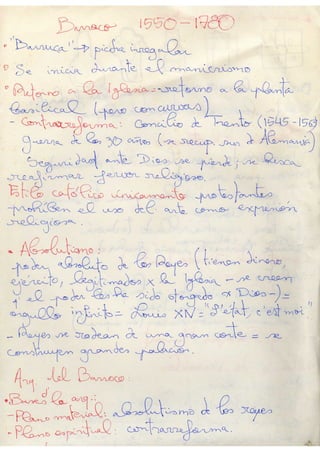 Barroco 1550-1780
• "Barruca" → piedra irregular
• Se inicia durante el manierismo
• Retorno a la Iglesia = retorno a la planta
basilical (pero con curvas)
- Contrarreforma: Concilio de Trento (1545-1563)
guerra de los 30 años (se recup. sur de Alemania)
Seguridad ante Dios se pierde, se busca
reafirmar fervor religioso.
Estilo católico únicamente, protestantes
prohíben el uso del arte como expresión
religiosa.
• Absolutismo:
poder absoluto de los Reyes (tienen dinero,
ejército, legitimados x la Iglesia - se creen
el poder les ha sido otorgado x Dios -) =
orgullo infinito = Louis XIV = "L'etat, c'est moi"
- Reyes se rodean de una gran corte = se
construyen grandes palacios.
Arq. del Barroco:
• Bases de la arq.:
- Plano material: absolutismo de los reyes
- Plano espiritual: contrarreforma.